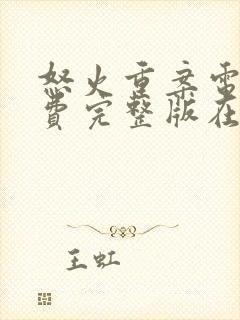 怒火重案電
費完整版在
王虹